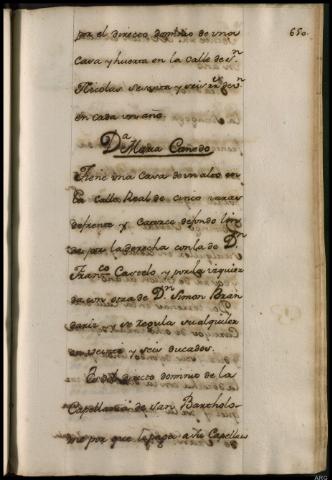 650.
por el directo dominio de una
Casa y huerta en la calle de Sn
Nicolas sesenta y seis rs de vn
en cada un año.
Da Maria Canedo
Tiene una Casa de un alto en
la calle Real de cinco varas
de frente y catorce de fondo lin
da por la derecha con la de Dn
Franco Carcelo y por la izquier
da con otra de Dn Simon Bran
dariz y se regula su alquiler
en veinte y seis ducados.
directo dominio de la
Capellania de San Bartholo
me por que le paga a su Capellan
ARG